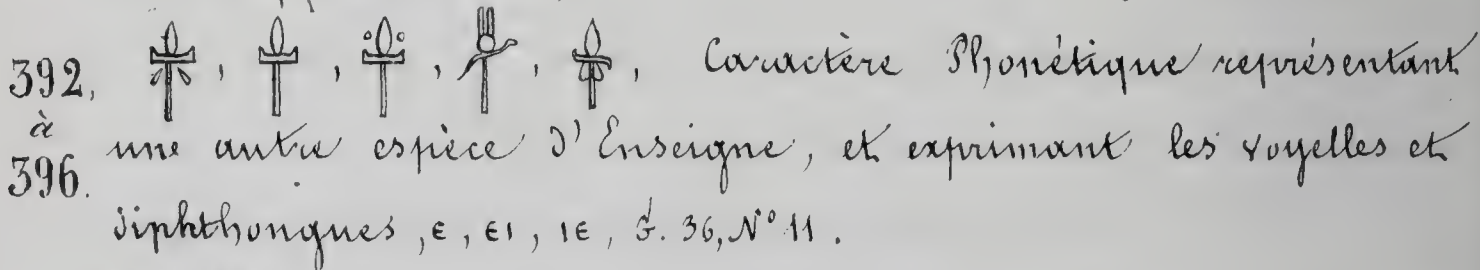 392, , , , , , Caractère Phonétique représentant
à
396. une autre espèce d'Enseigne, et exprimant les voyelles et
diphthongues, ε, ει, ιε, G. 36, N° 11.